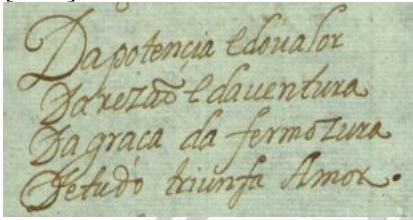 Da potencia e do ualor
Da rezaõ e da uentura
Da graça da fermozura
De tudo triunfa Amor.